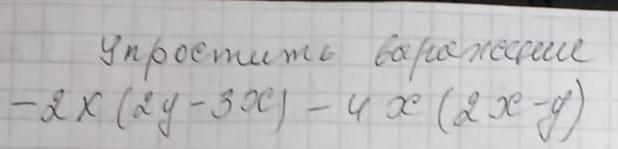 Упростить выражение
-2x(2y-3x)-4x(2x-y)